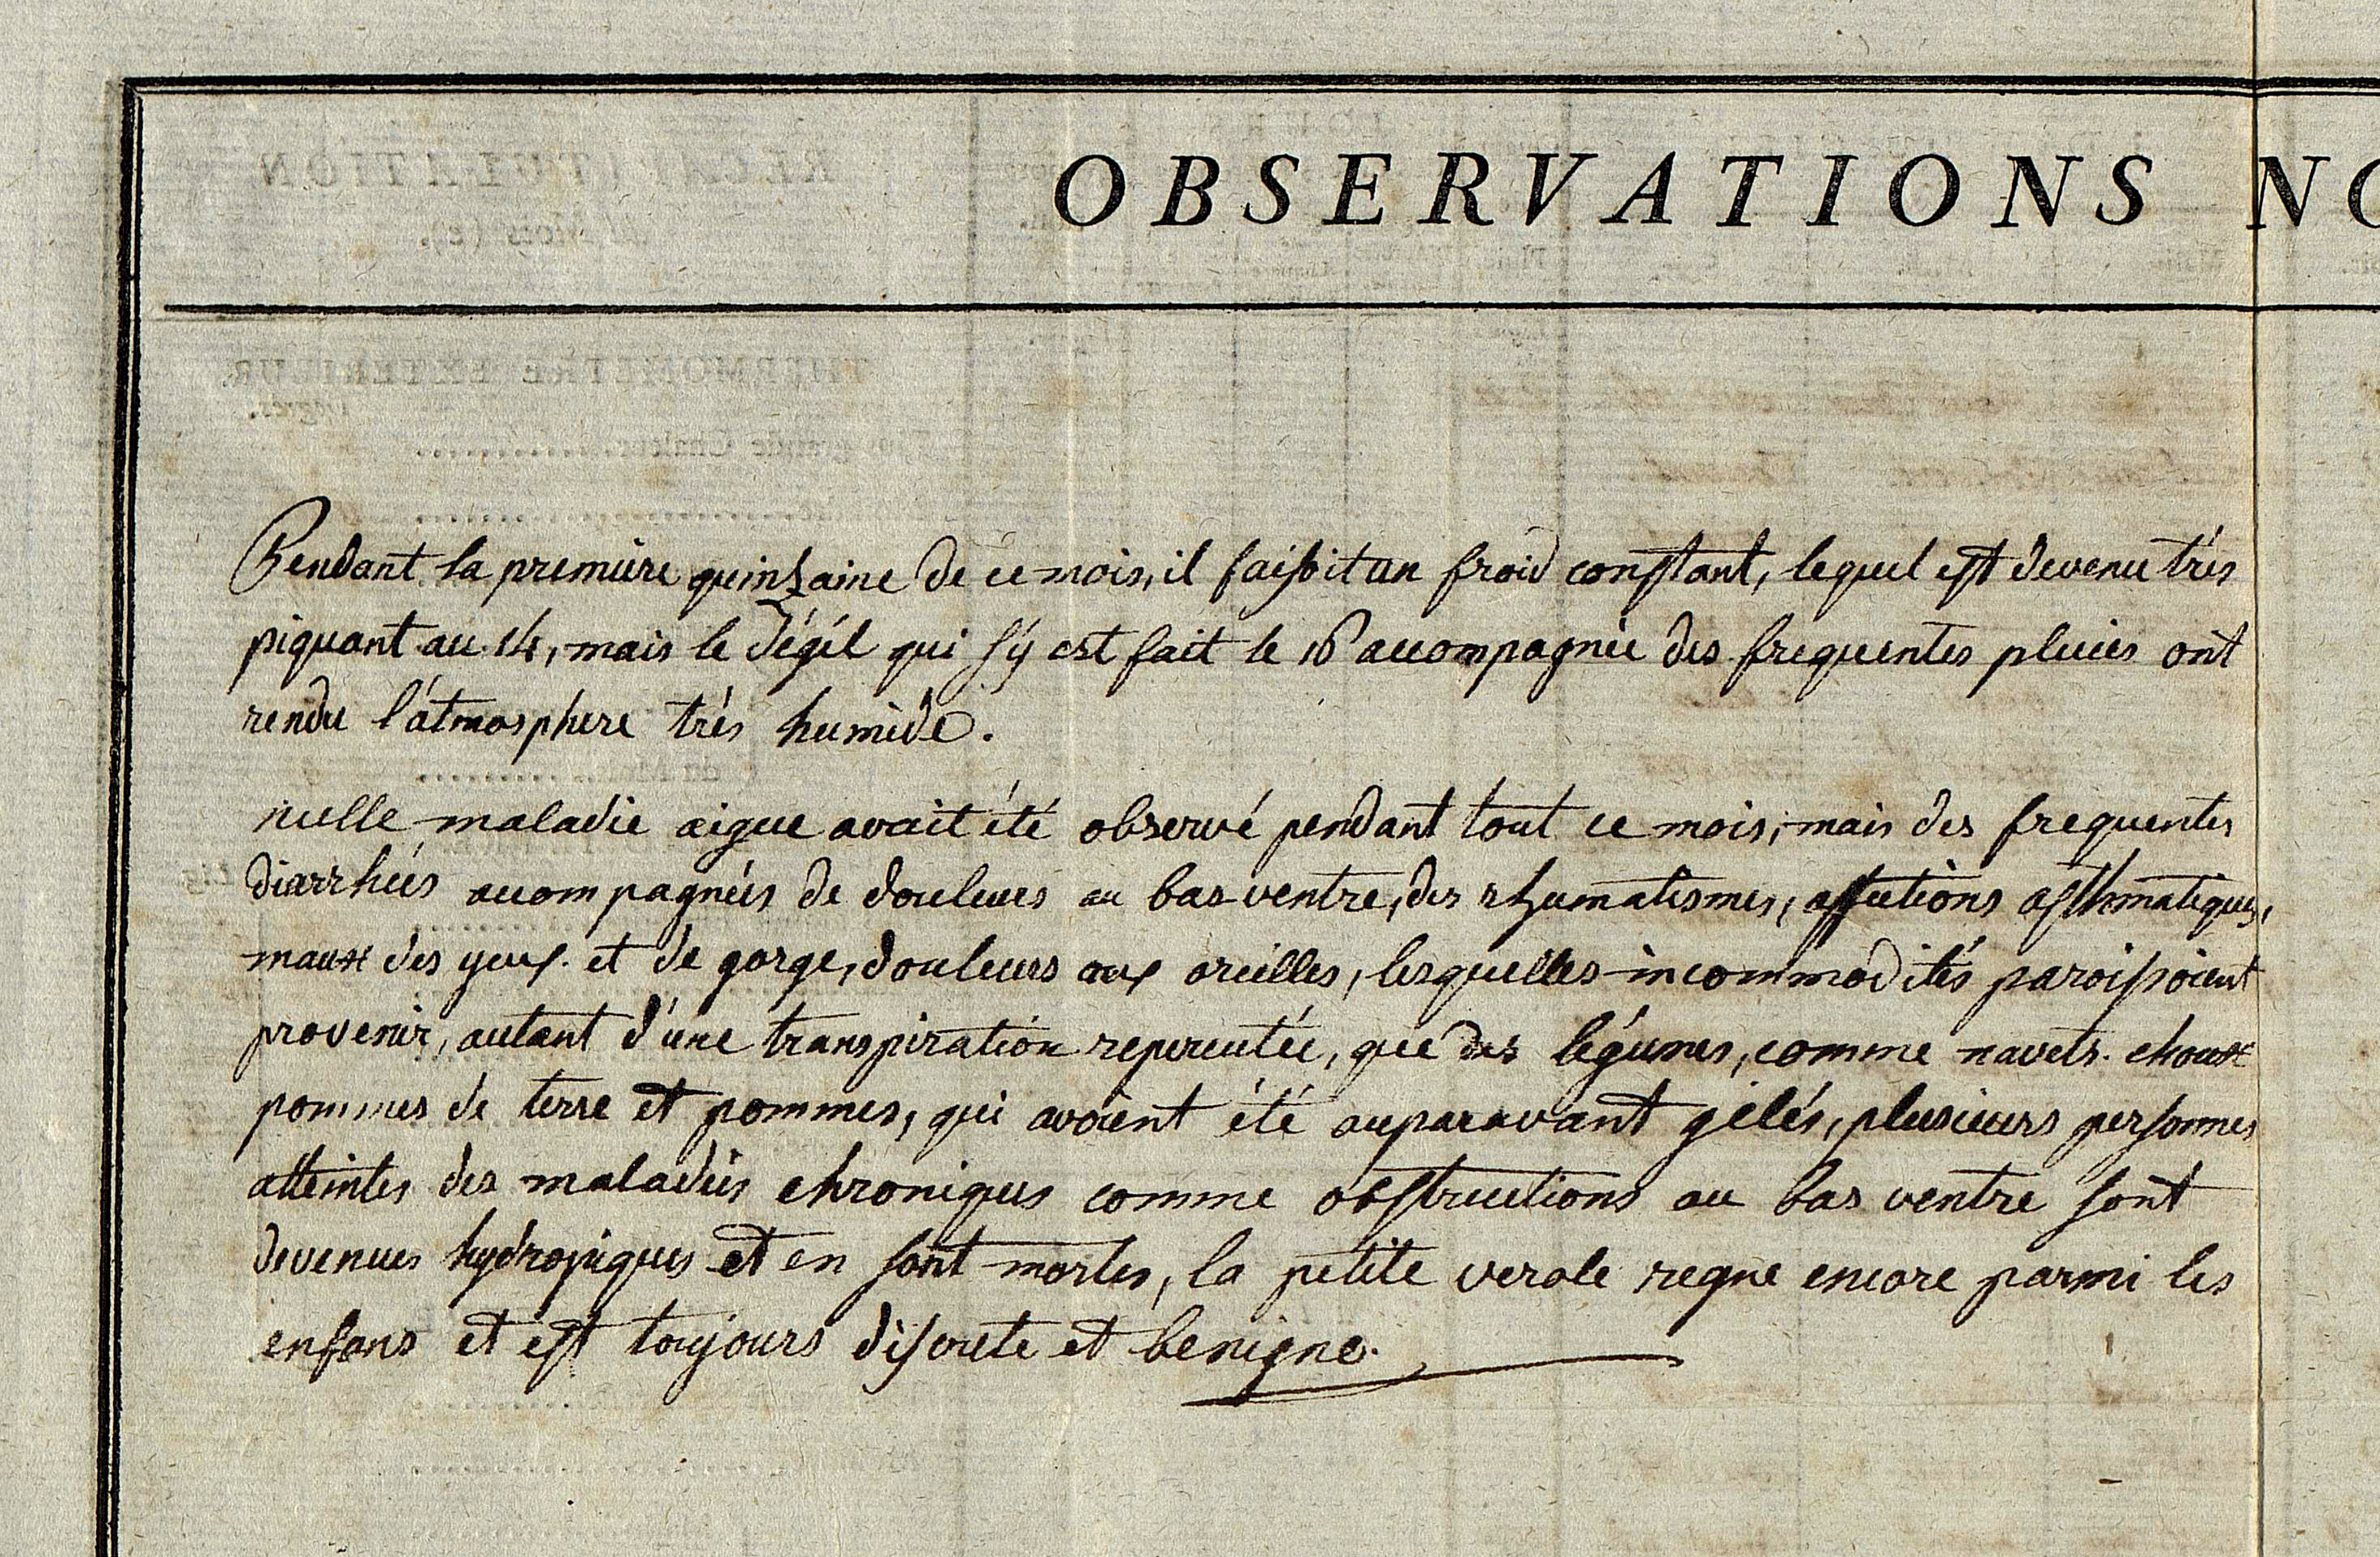 OBSERVATIONS NO
Pendant la premiere quinzaine de ce mois, il faisoit un froid constant, lequel est devenu trés
piquant au 14, mais le dégél qui s'y est fait le 16 accompagnée des frequentes pluies ont
rendu l'átmosphere trés humide.
nulle maladie aigue avait été observé pendant tout ce mois; mais des frequentes
diarrhées accompagnées de douleurs au bas-ventre, des rhumatismes, affections asthmatiques,
maux des yeux et de gorge, douleurs aux oreilles, lesquelles incommodités paroissoient
provenir, autant d'une transpiration repercutée, que des légumes, comme navets. choux
pommes de terre et pommes, qui avoient été auparavant gélés, plusieurs personnes
atteintes des maladies chroniques comme obstructions au bas ventre sont
devenues hydropiques et en sont mortes, la petite verole regne encore parmi les
enfans et est toujours discrete et benigne.